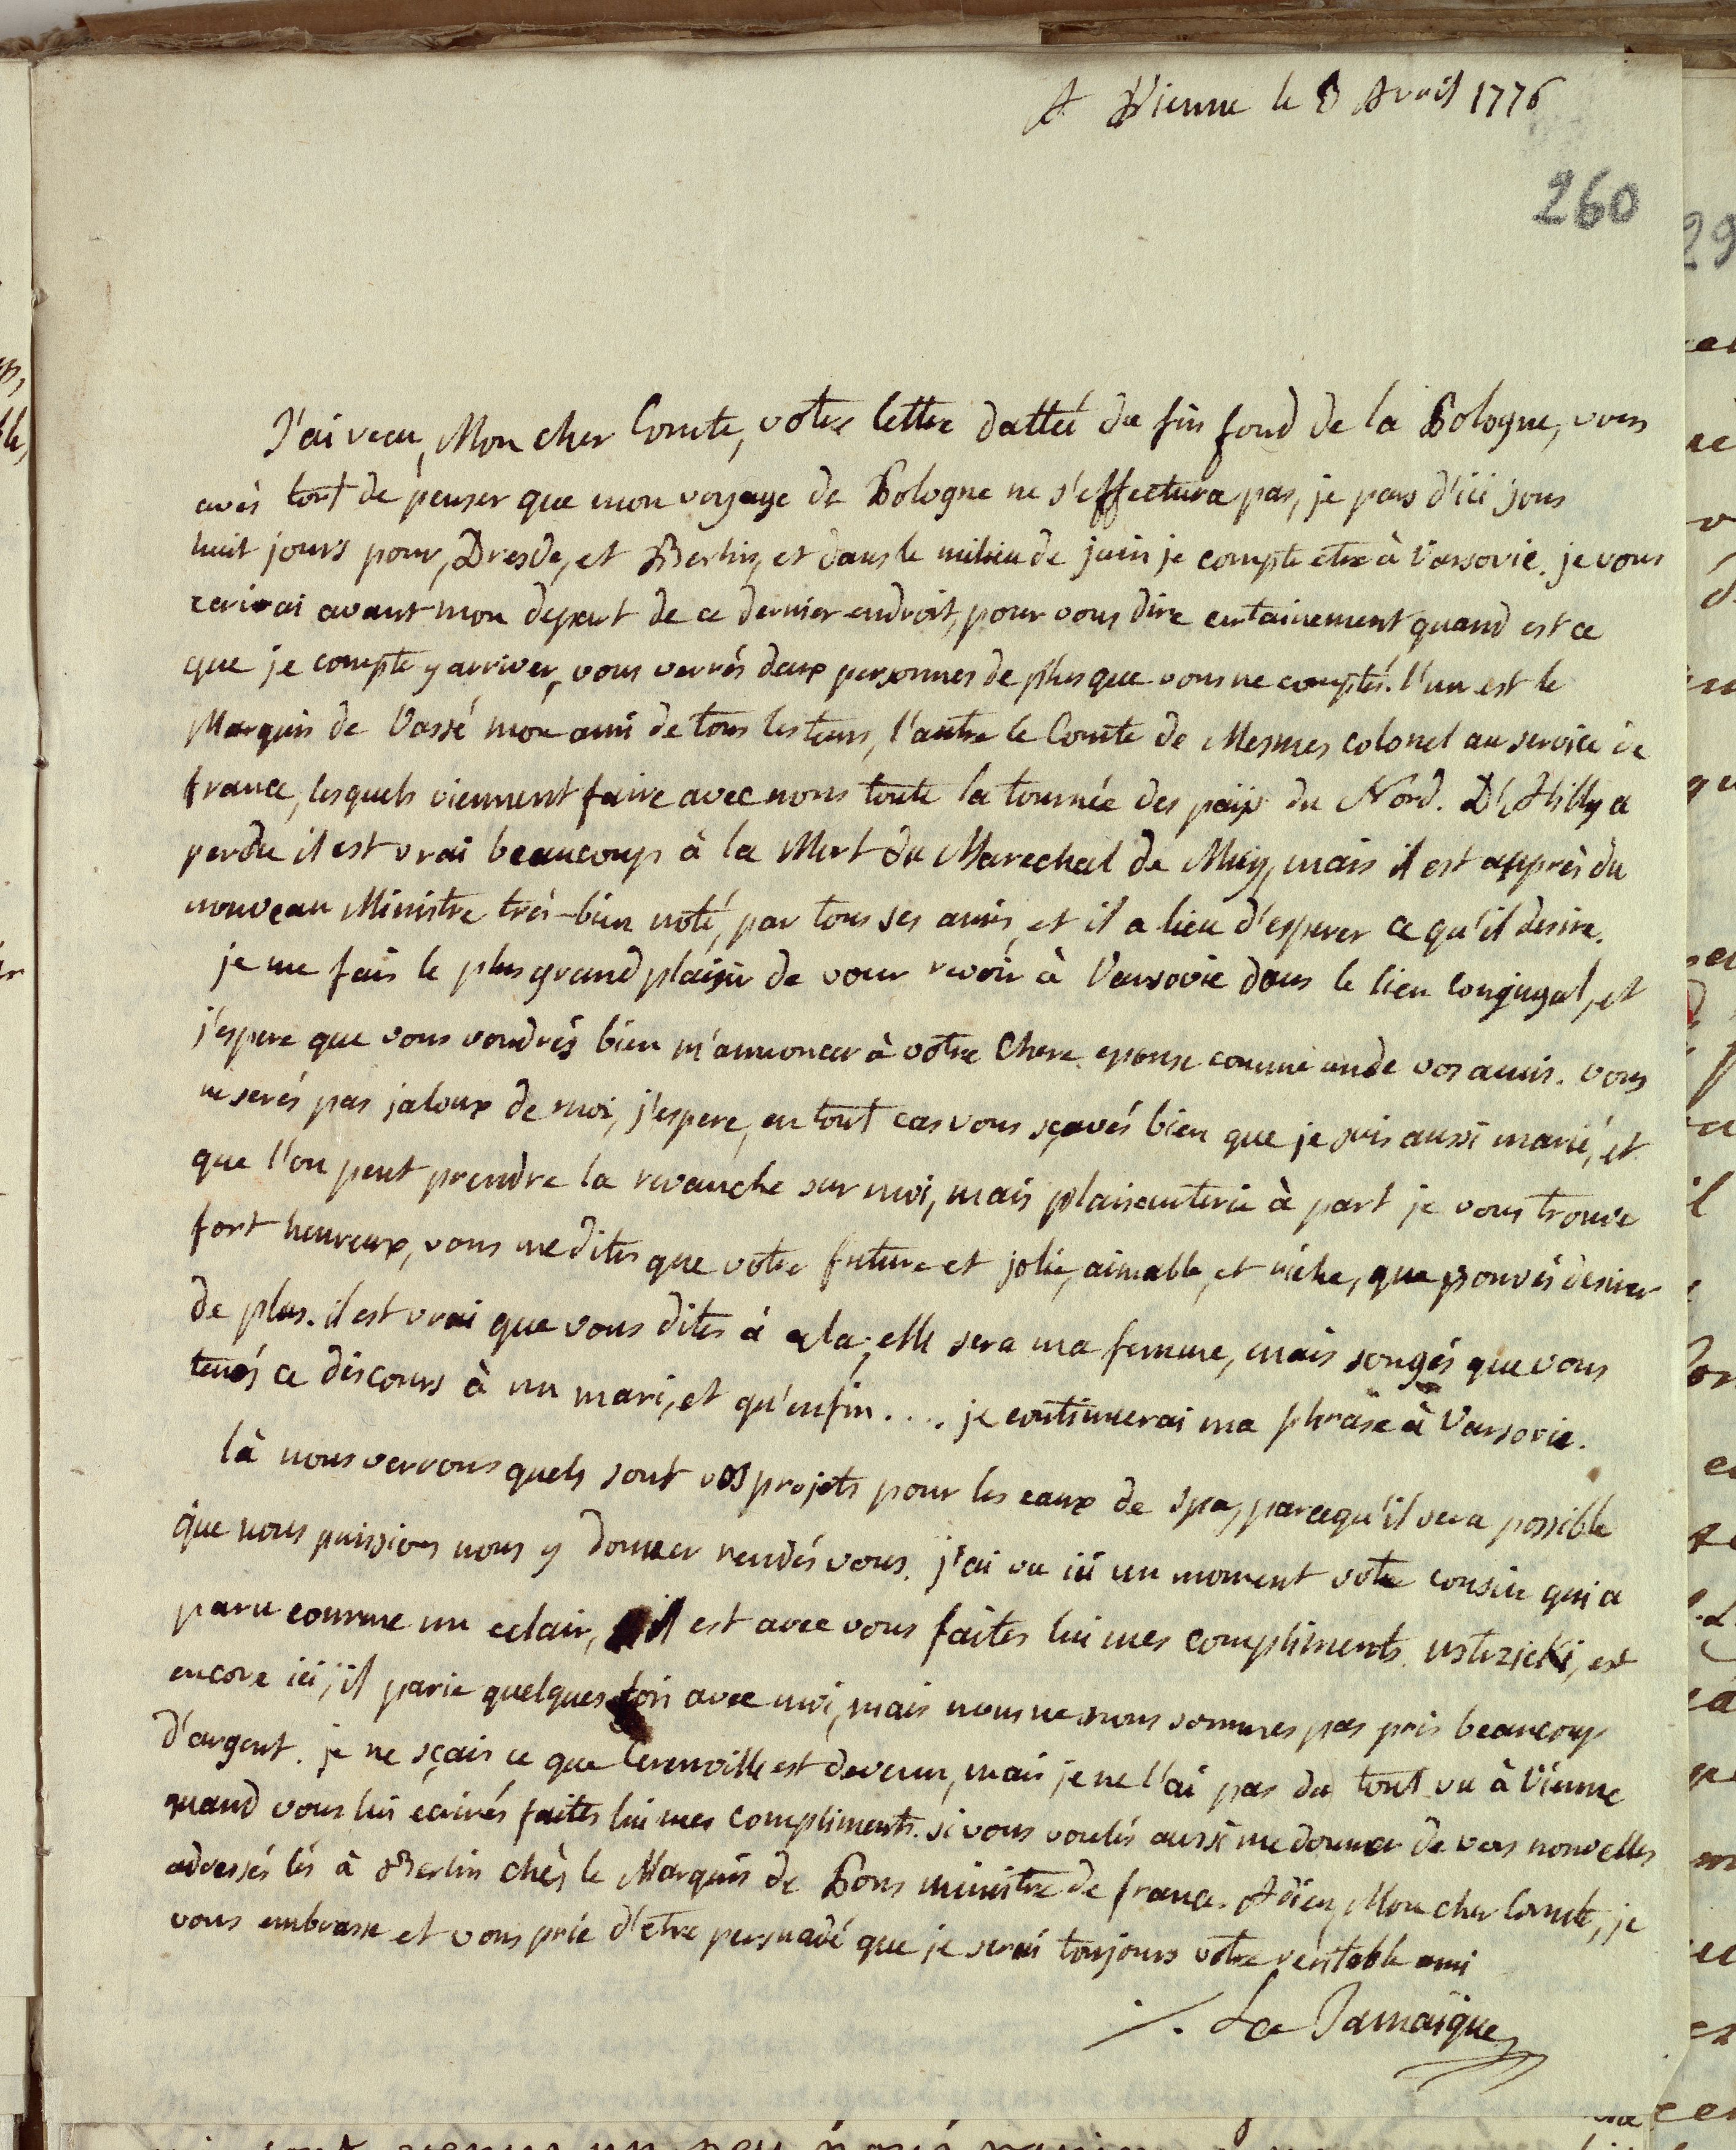 A Vienne le 8 Avril 1776
260
J'ai recu, Mon cher Comte, votre lettre datteé du fin fond de la Pologne, vous
avés tort de penser que mon voyage de Pologne ne s'effectura pas, je pars d'ici sous
huit jours pour, Dresde, et Berlin, et dans le milieu de juin je compte etre à Varsovie. je vous
ecrirai avant mon depart de ce dernier endroit, pour vous dire certainement quand est ce
que je compte y arriver, vous verrés deux personnes de plus que vous ne comptés. l'un est le
Marquis de Vassé mon ami de tous les tems, l'autre le Comte de Mesmes colonel au service de
france, lesquels viennent faire avec nous toute la tournée des païx du Nord. D'Hilly a
perdu il est vrai beaucoup à la Mort du Marechal de Muy, mais il est auprès du
nouveau Ministre trés-bien noté, par tous ses amis, et il a lieu d'esperer ce qu'il desire.
je me fais le plus grand plaisir de vour revoir à Varsovie dans le lien conjugal, et
j'espere que vous voudrés bien m'annoncer à votre Chere epouse comme un de vos amis. vous
ne serés pas jaloux de moi, j'espere, en tout cas vous sçavés bien que je suis aussi marié, et
que l'on peut prendre la revanche sur moi, mais plaisanterie à part je vous trouve
fort heureux, vous me dites que votre future et jolie, aimable, et riche, que pouvés desirer
de plus. il est vrai que vous dites à cela, elle sera ma femme, mais songés que vous
tenés ce discours à un mari, et qu'enfin.... je continuerai ma phrase à Varsovie.
là nous verrons quels sont vos projets pour les eaux de spa, parcequ'il sera possible
que nous puissions nous y donner rendés vous. j'ai vu ici un moment votre cousin qui a
paru comme un eclair, il est avec vous faites lui mes compliments. ustrzicki, est
encore ici, il parie quelques fois avec moi, mais nous ne nous sommes pas pris beaucoup
d'argent. je ne sçais ce que Cerenville est devenu, mais je ne l'ai pas du tout vu à Vienne
quand vous lui ecrirés faites lui mes compliments. si vous voulés aussi me donner de vos nouvelles
adressés lés à Berlin chès le Marquis de Pons ministre de france. Adieu Mon cher Comte, je
vous embrasse et vous prie d'etre persuadé que je serai toujours votre veritable ami
La Jamaïque